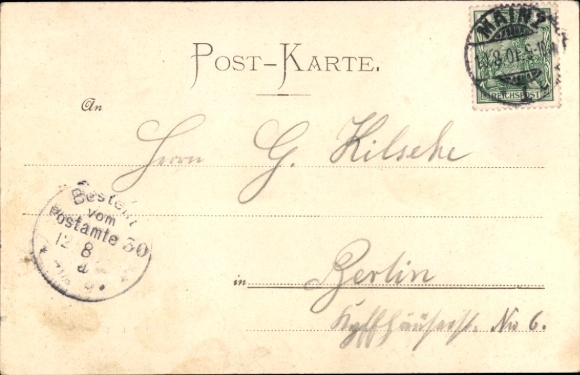 MAINZ
8.01.5-10
REICHSPOST
POST-KARTE.
An
Herrn G. Kilsche
Bestellt
vom
Postamte 30
12 8
in Berlin
Kyffhäuserstr. No 6.